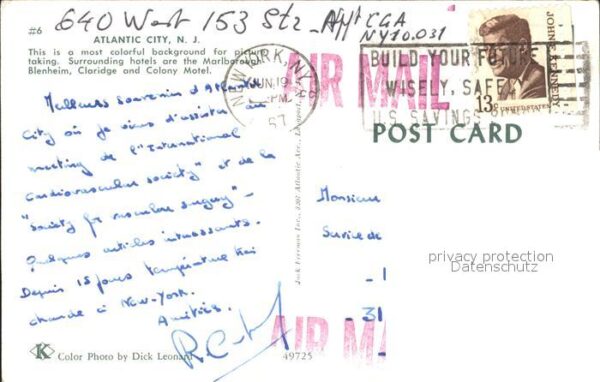 640 West 153 Str. Appt C6A
NY 10.031
#6
ATLANTIC CITY, N. J.
This is a most colorful background for picture
taking. Surrounding hotels are the Marlborough
Blenheim, Claridge and Colony Motel.
NEW YORK, N.Y.
JUN 19
PM
67
AIR MAIL
BUILD YOUR FUTURE
WISELY, SAFELY
U.S. SAVINGS
JOHN F. KENNEDY
13c
UNITED STATES
POST CARD
Meilleurs souvenirs d'Atlantic
City où je viens d'assister au
meeting de l'"International
Cardiovascular society" et de la
"society for vascular surgery" -
Quelques articles intéressants.
Depuis 15 jours température très
chaude à New-York.
Amitiés.
Monsieur
Service de
31
privacy protection
Datenschutz
Jack Freeman Inc., 2207 Atlantic Ave., Longport, N. J.
AIR MAIL
K
Color Photo by Dick Leonard
49725